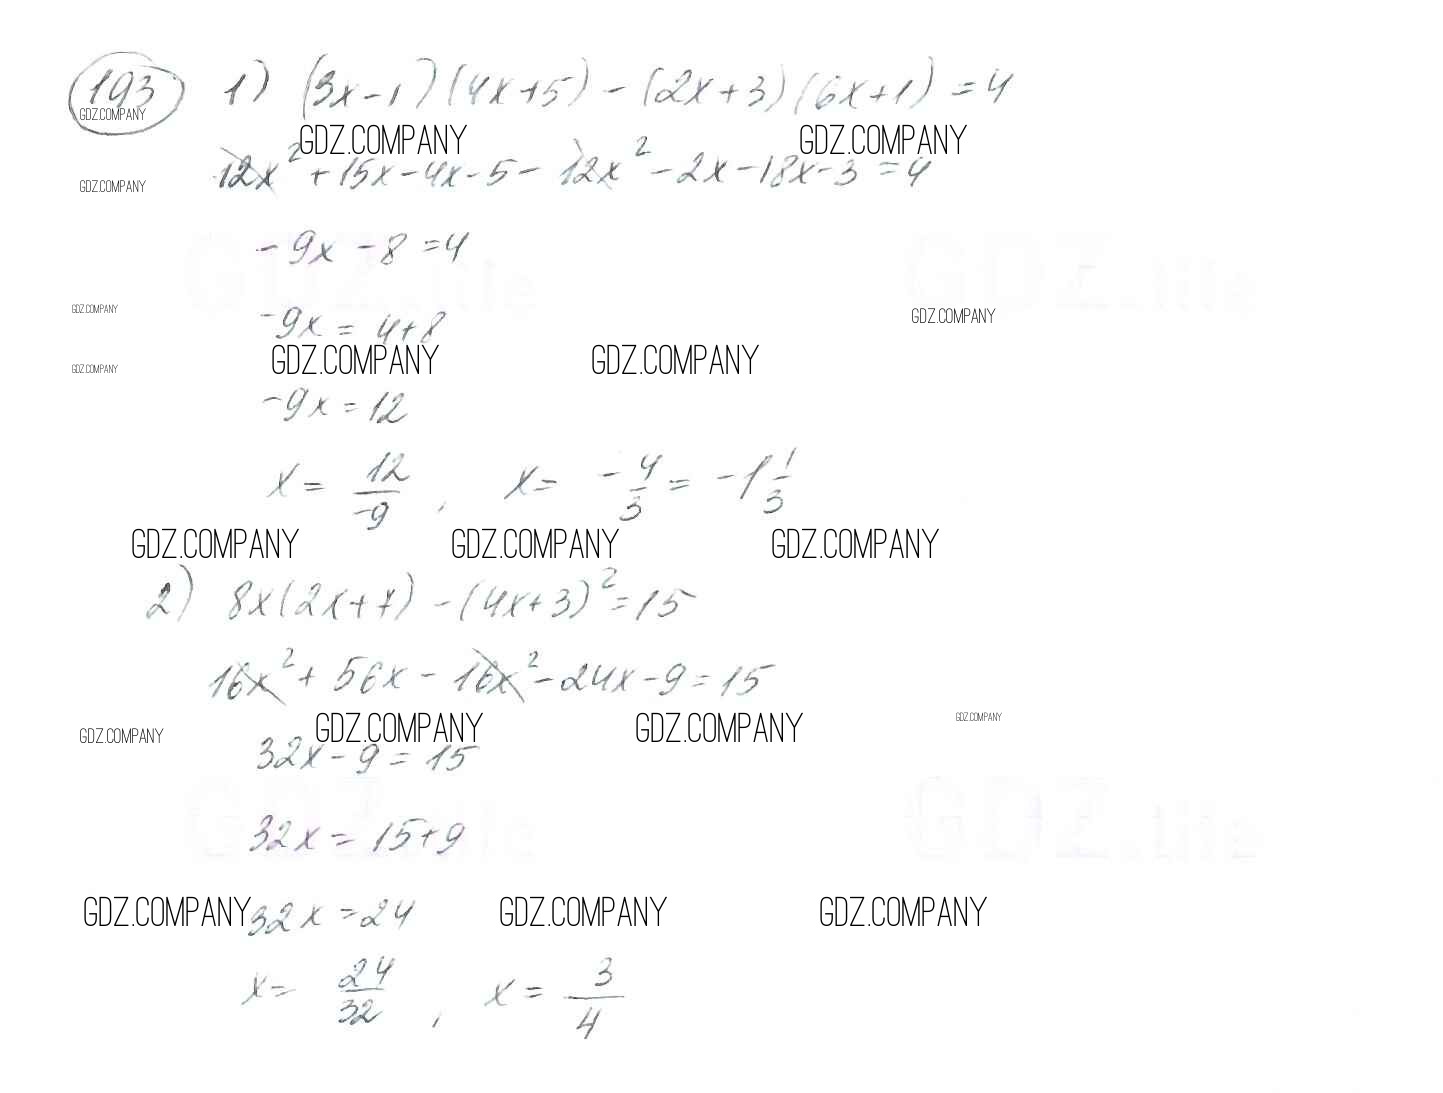 193 1) (3x-1)(4x+5) - (2x+3)(6x+1) = 4
GDZ.COMPANY
GDZ.COMPANY GDZ.COMPANY
12x² + 15x - 4x - 5 - 12x² - 2x - 18x - 3 = 4
GDZ.COMPANY
-9x - 8 = 4
GDZ.life GDZ.life
GDZ.COMPANY GDZ.COMPANY
-9x = 4+8
GDZ.COMPANY GDZ.COMPANY GDZ.COMPANY
-9x = 12
x = 12/-9 , x = -4/3 = -1 1/3
GDZ.COMPANY GDZ.COMPANY GDZ.COMPANY
2) 8x(2x+7) - (4x+3)² = 15
16x² + 56x - 16x² - 24x - 9 = 15
GDZ.COMPANY GDZ.COMPANY GDZ.COMPANY GDZ.COMPANY
32x - 9 = 15
32x = 15+9
GDZ.life GDZ.life
GDZ.COMPANY 32x = 24 GDZ.COMPANY GDZ.COMPANY
x = 24/32 , x = 3/4